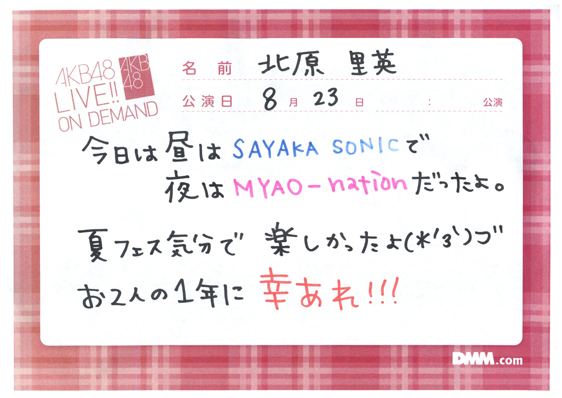 AKB48
LIVE!!
ON DEMAND
AKB
48
名 前 北原 里英
公演日 8月 23日 : 公演
今日は 昼は SAYAKA SONICで
夜は MYAO-nationだったよ。
夏フェス気分で 楽しかったよ(*'3`)づ
お2人の1年に 幸あれ!!!
DMM.com